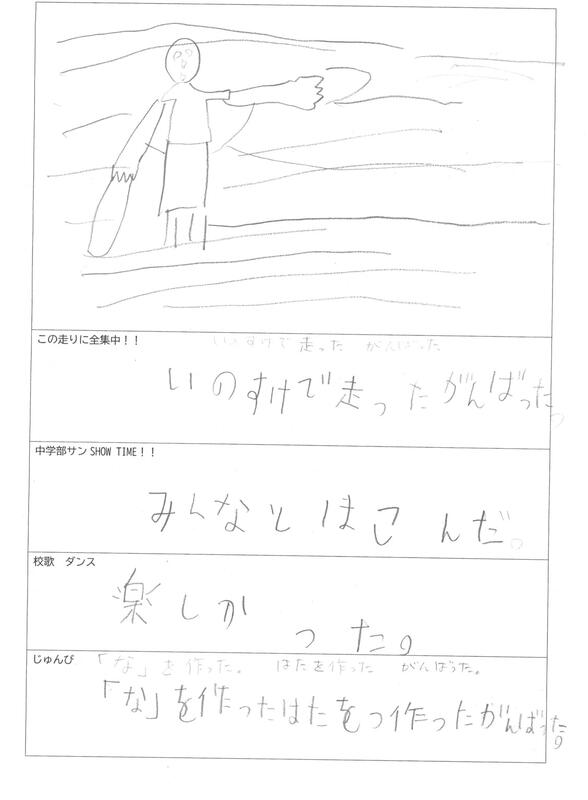 この走りに全集中！！
いのすけで走った　がんばった
いのすけで走ったがんばった。
中学部サン SHOW TIME！！
みんなとはこんだ。
校歌　ダンス
楽しかった。
じゅんび
「な」を作った。　はたを作った　がんばった。
「な」を作ったはたをつ作ったがんばった。